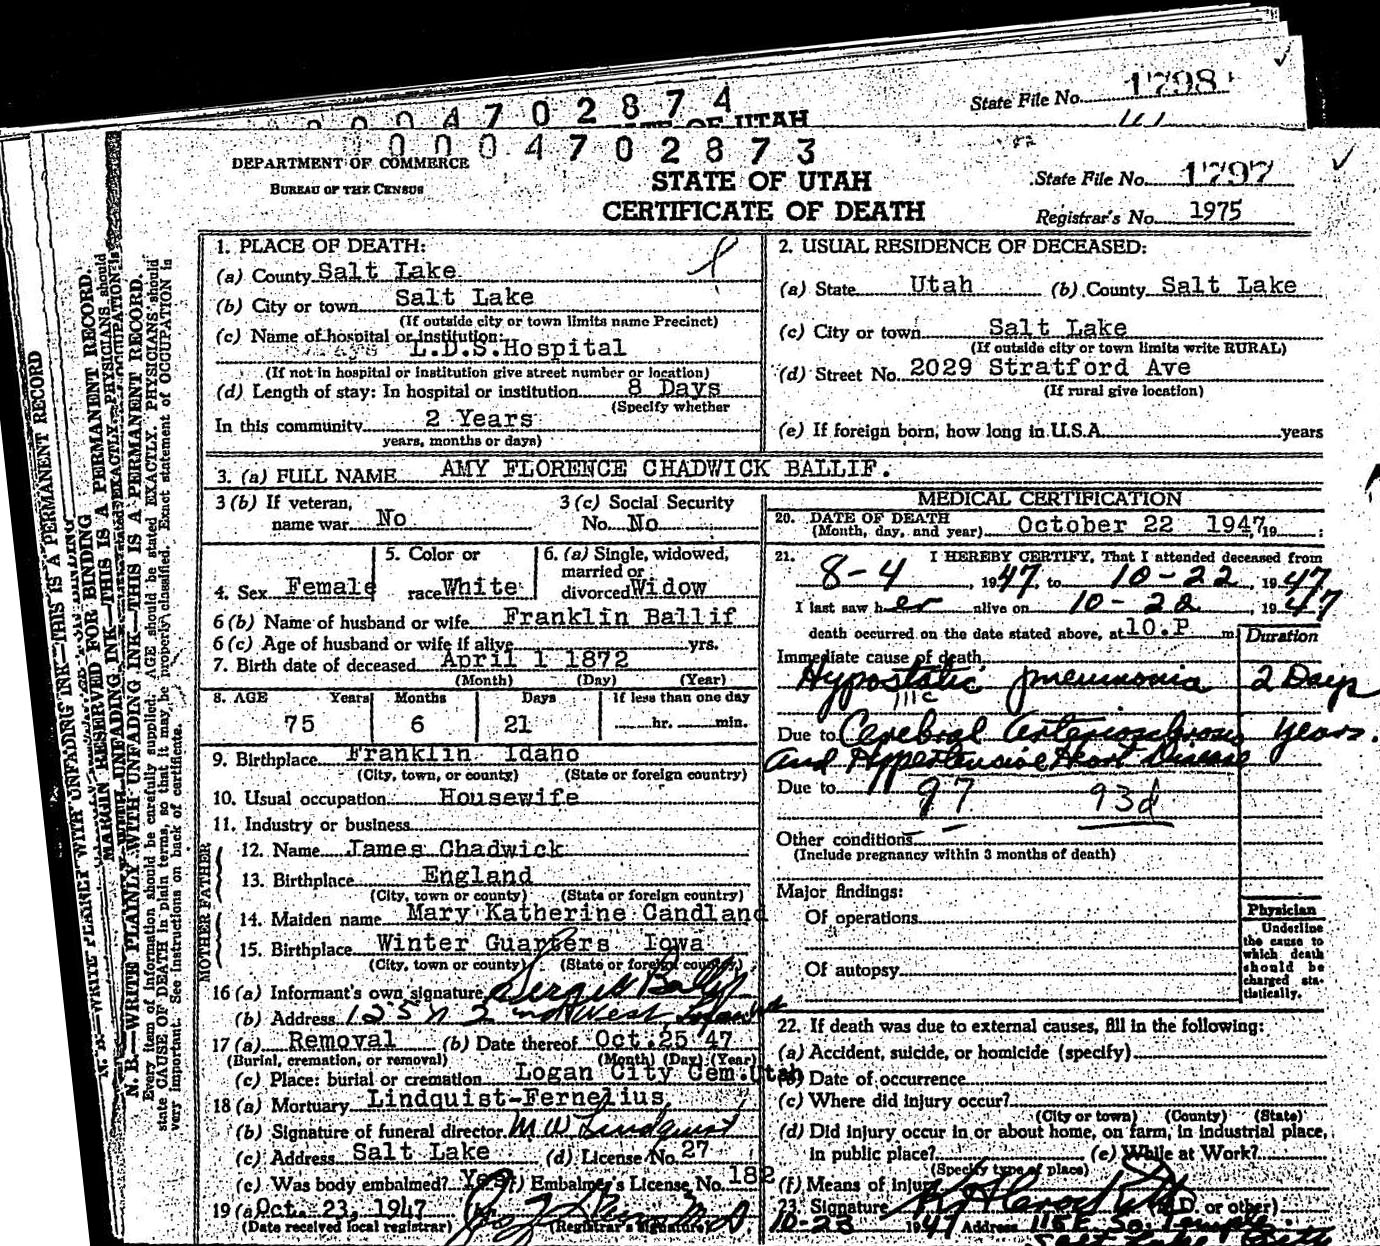 State File No. 1798
0 0 0 4 7 0 2 8 7 4
STATE OF UTAH
0 0 0 4 7 0 2 8 7 3
DEPARTMENT OF COMMERCE
BUREAU OF THE CENSUS
STATE OF UTAH
CERTIFICATE OF DEATH
State File No. 1797
Registrar's No. 1975
1. PLACE OF DEATH:
(a) County Salt Lake
(b) City or town Salt Lake
(If outside city or town limits name Precinct)
(c) Name of hospital or institution:
L.D.S. Hospital
(If not in hospital or institution give street number or location)
(d) Length of stay: In hospital or institution 8 Days
(Specify whether
In this community 2 Years
years, months or days)
2. USUAL RESIDENCE OF DECEASED:
(a) State Utah (b) County Salt Lake
(c) City or town Salt Lake
(If outside city or town limits write RURAL)
(d) Street No. 2029 Stratford Ave
(If rural give location)
(e) If foreign born, how long in U.S.A. years
3. (a) FULL NAME AMY FLORENCE CHADWICK BALLIF.
3 (b) If veteran, name war No
3 (c) Social Security No. No
4. Sex Female
5. Color or race White
6. (a) Single, widowed, married or divorced Widow
6 (b) Name of husband or wife Franklin Ballif
6 (c) Age of husband or wife if alive yrs.
7. Birth date of deceased April 1 1872
(Month) (Day) (Year)
8. AGE Years Months Days If less than one day
75 6 21 hr. min.
9. Birthplace Franklin Idaho
(City, town, or county) (State or foreign country)
10. Usual occupation Housewife
11. Industry or business
FATHER
12. Name James Chadwick
13. Birthplace England
(City, town or county) (State or foreign country)
MOTHER
14. Maiden name Mary Katherine Candland
15. Birthplace Winter Quarters Iowa
(City, town or county) (State or foreign country)
16 (a) Informant's own signature Ballif
(b) Address 125 N 2nd West, Logan
17 (a) Removal (b) Date thereof Oct. 25 47
(Burial, cremation, or removal) (Month) (Day) (Year)
(c) Place: burial or cremation Logan City Cem. Utah
18 (a) Mortuary Lindquist-Fernelius
(b) Signature of funeral director M W Lindquist
(c) Address Salt Lake (d) License No. 27
(e) Was body embalmed? Yes (f) Embalmer's License No. 182
19 (a) Oct. 23, 1947
(Date received local registrar) (Registrar's signature)
MEDICAL CERTIFICATION
20. DATE OF DEATH
(Month, day, and year) October 22 1947, 19 :
21. I HEREBY CERTIFY, That I attended deceased from
8-4, 1947, to 10-22, 1947
I last saw her alive on 10-22, 1947
death occurred on the date stated above, at 10.P m
Duration
Immediate cause of death
Hypostatic pneumonia 2 Days
111c
Due to Cerebral arteriosclerosis years.
and Hypertensive Heart Disease
Due to 97 93d
Other conditions
(Include pregnancy within 3 months of death)
Major findings:
Of operations
Of autopsy
Physician
Underline
the cause to
which death
should be
charged sta-
tistically.
22. If death was due to external causes, fill in the following:
(a) Accident, suicide, or homicide (specify)
(b) Date of occurrence
(c) Where did injury occur?
(City or town) (County) (State)
(d) Did injury occur in or about home, on farm, in industrial place,
in public place? (e) While at Work?
(Specify type of place)
(f) Means of injury
23. Signature (M.D. or other)
10-23 1947 Address 115 E. So. Temple
Salt Lake City
N. B.—WRITE PLAINLY WITH UNFADING INK—THIS IS A PERMANENT RECORD.
MARGIN RESERVED FOR BINDING
Every item of information should be carefully supplied. AGE should be stated EXACTLY. PHYSICIANS should
state CAUSE OF DEATH in plain terms, so that it may be properly classified. Exact statement of OCCUPATION is
very important. See instructions on back of certificate.